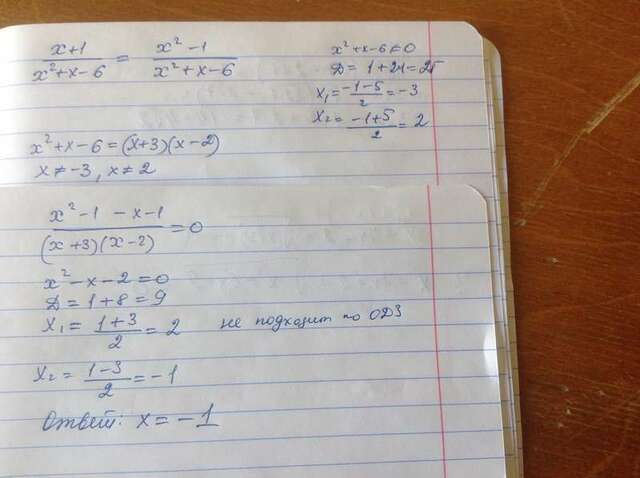 x+1 / x²+x-6 = x²-1 / x²+x-6
x²+x-6=0
D = 1+24=25
x₁ = -1-5 / 2 = -3
x₂ = -1+5 / 2 = 2
x²+x-6=(x+3)(x-2)
x≠-3, x≠2
x²-1-x-1 / (x+3)(x-2) = 0
x²-x-2=0
D=1+8=9
x₁ = 1+3 / 2 = 2 не подходит по ОДЗ
x₂ = 1-3 / 2 = -1
Ответ: x=-1